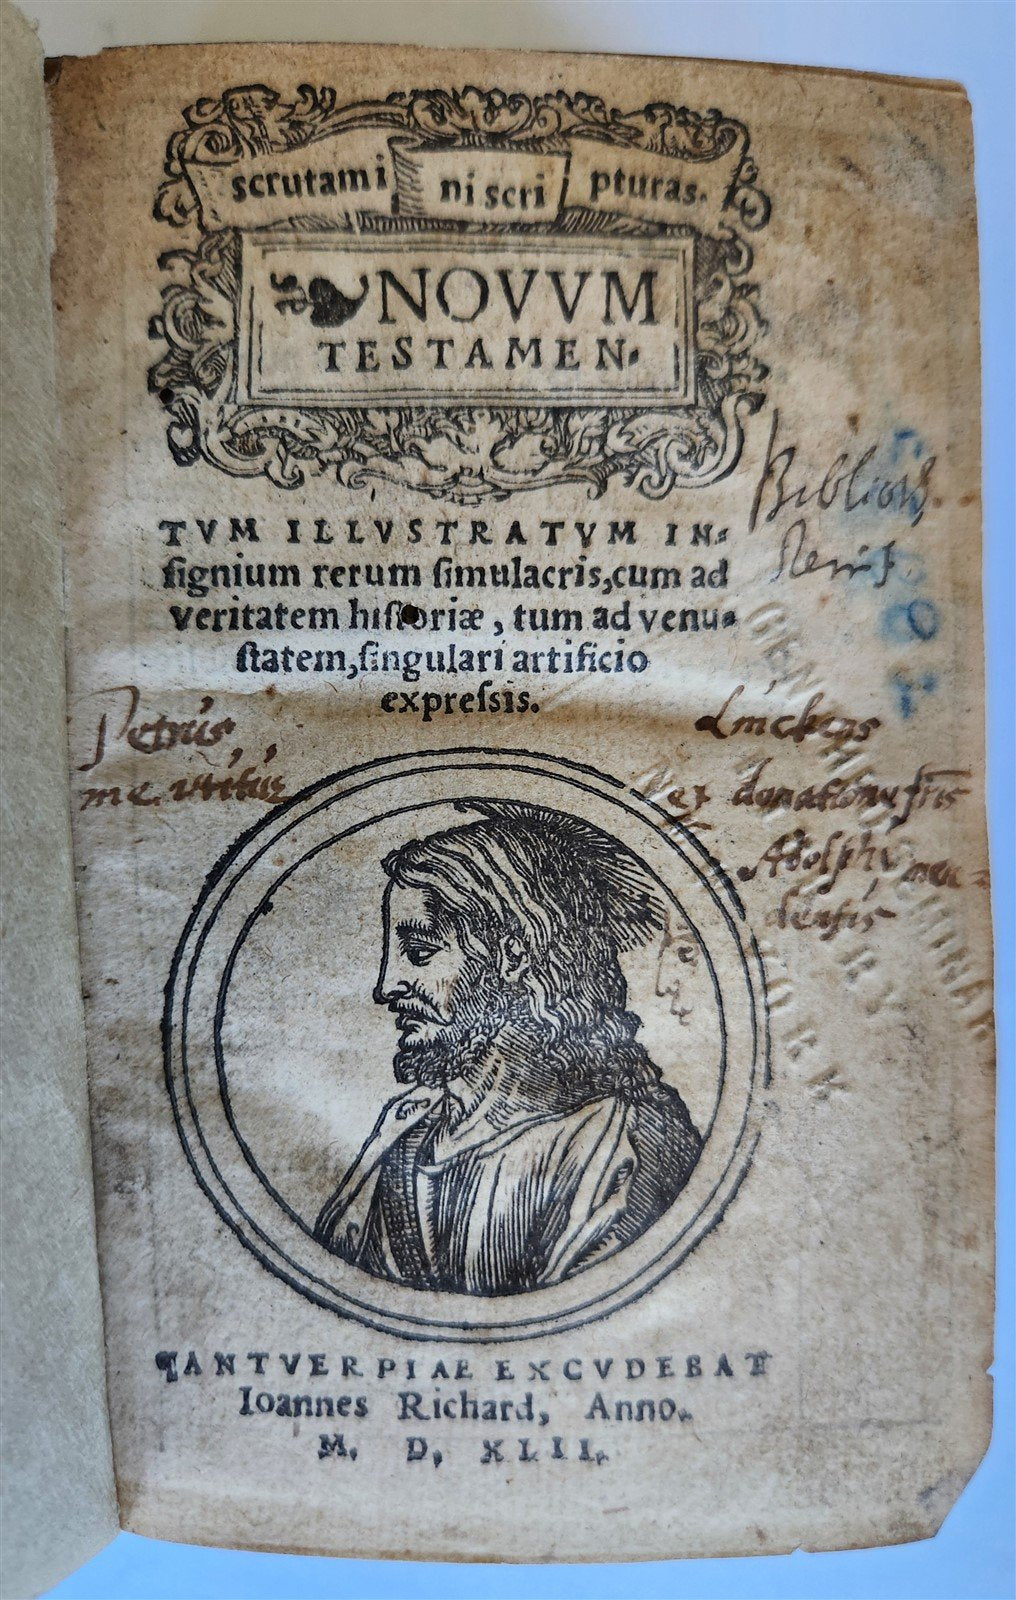 scrutamini scripturas.
NOVVM
TESTAMEN-
TVM ILLVSTRATVM IN-
signium rerum simulacris, cum ad
veritatem historiæ, tum ad venu-
statem, singulari artificio
expressis.
Petrus
Linckens
me utitur
ex donatione fris
Adolphi
densis
GENERAL
SEMINARY
YORK
ANTVERPIAE EXCVDEBAT
Ioannes Richard, Anno.
M. D. XLII.